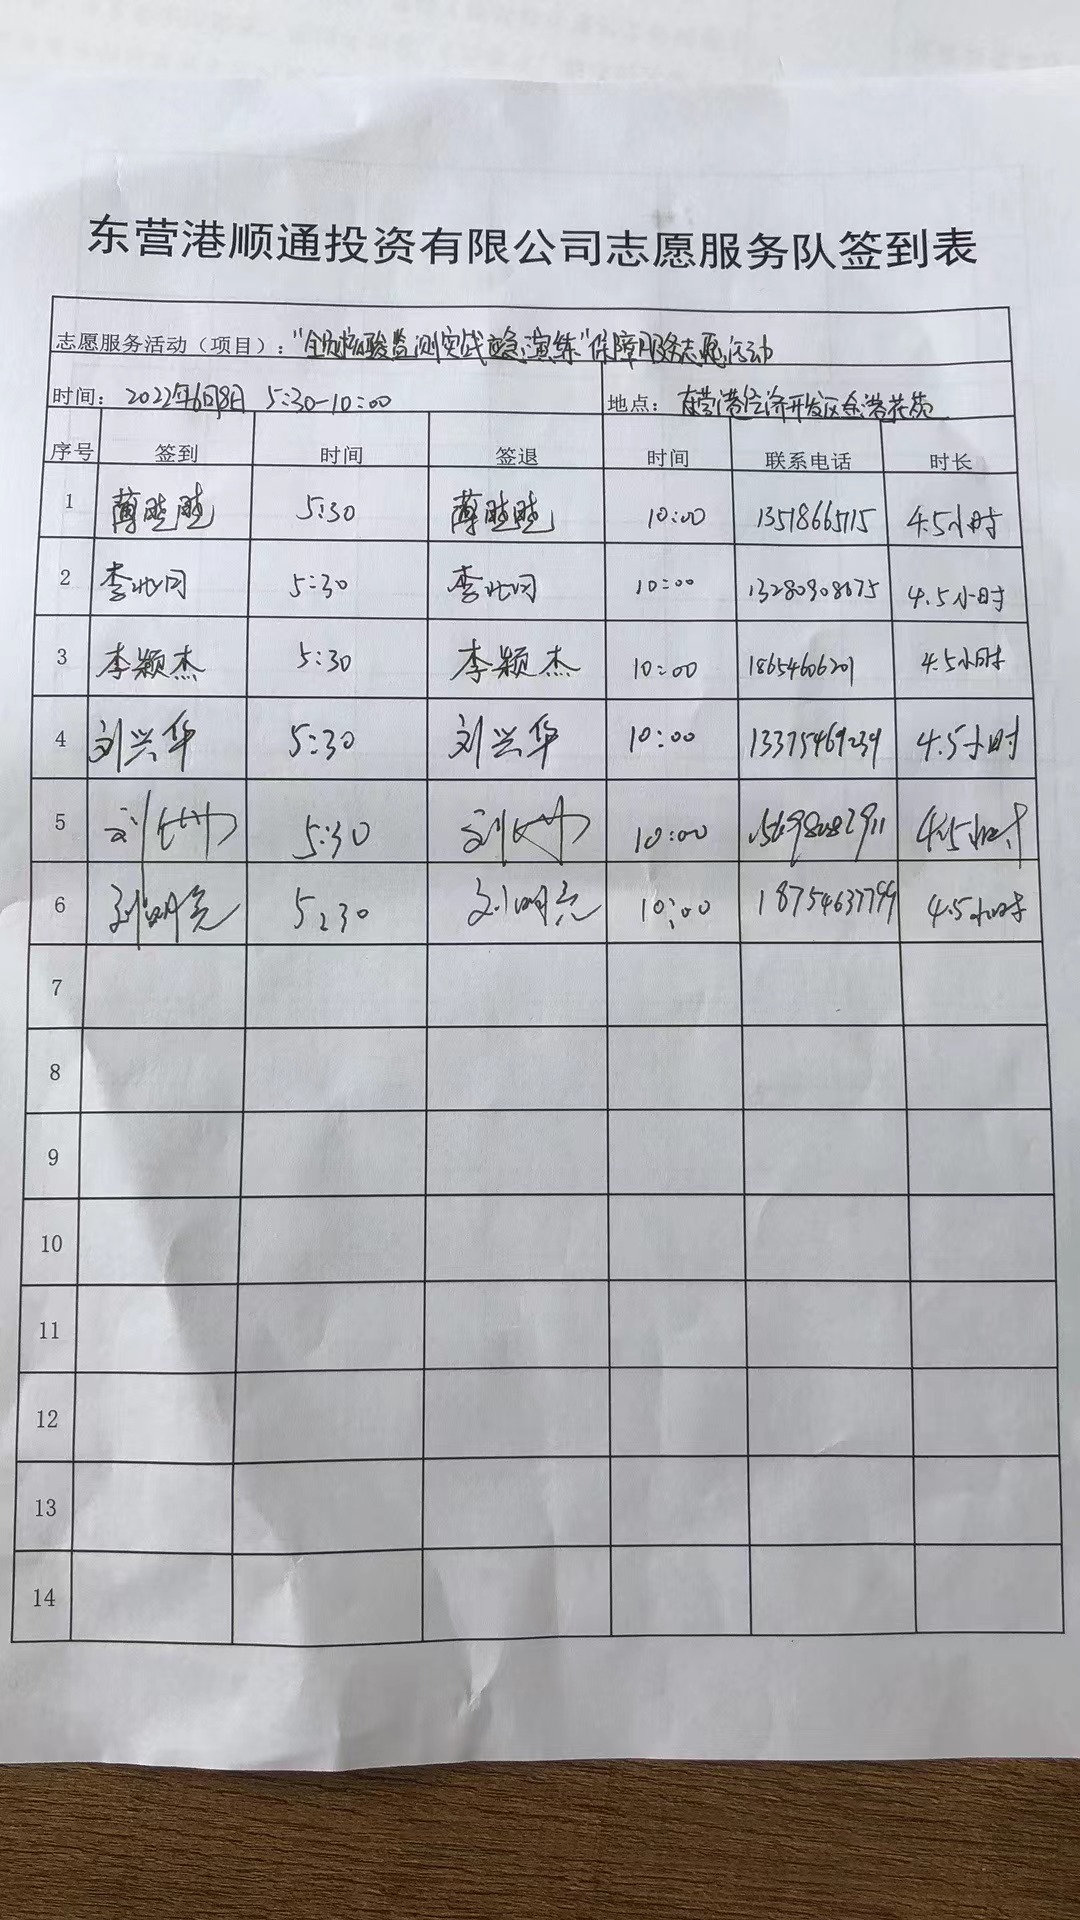 东营港顺通投资有限公司志愿服务队签到表
志愿服务活动（项目）：“全员核酸检测实战应急演练”保障服务志愿活动
时间： 2022年6月8日 5:30-10:00 地点： 东营港经济开发区金港花苑
序号 签到 时间 签退 时间 联系电话 时长
1 薄 5:30 薄 10:00 13518665715 4.5小时
2 李 5:30 李 10:00 13280908675 4.5小时
3 李颖杰 5:30 李颖杰 10:00 18654606201 4.5小时
4 刘兴华 5:30 刘兴华 10:00 13375469239 4.5小时
5 刘 5:30 刘 10:00 4.5小时
6 刘明亮 5:30 刘明亮 10:00 18754637799 4.5小时
7
8
9
10
11
12
13
14